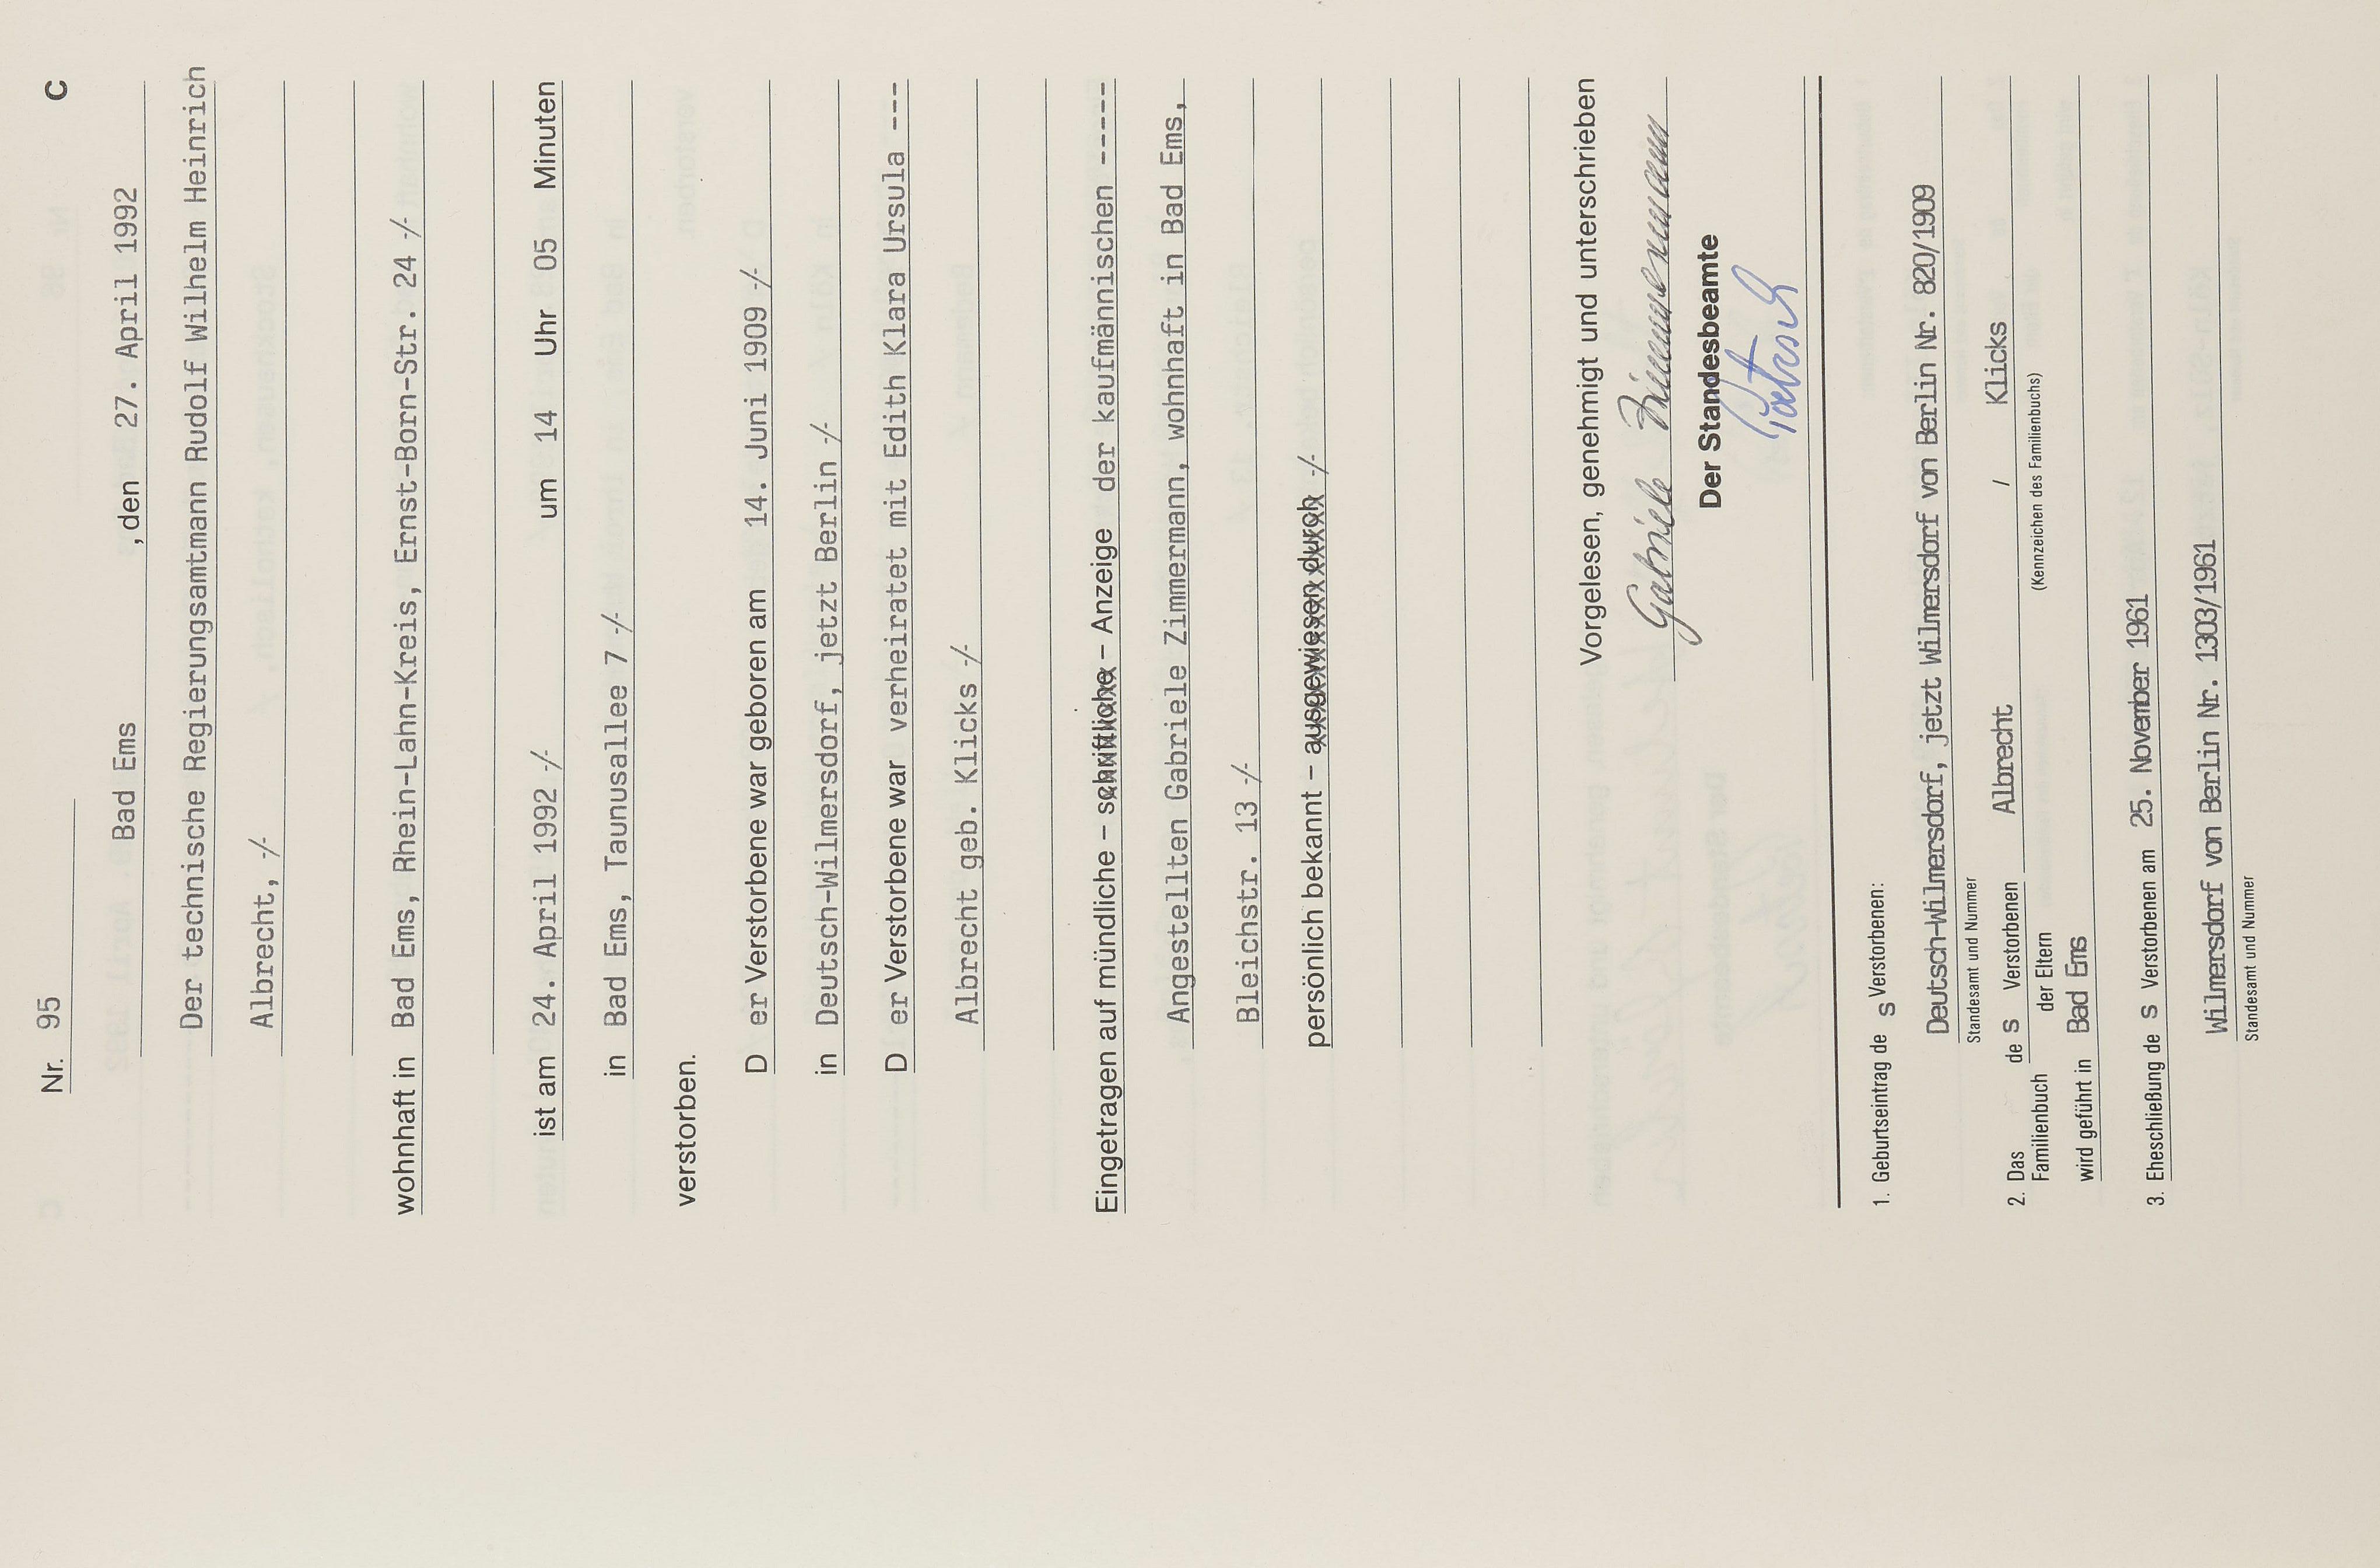 Nr. 95 C
Bad Ems , den 27. April 1992
Der technische Regierungsamtmann Rudolf Wilhelm Heinrich
Albrecht, -/-
wohnhaft in Bad Ems, Rhein-Lahn-Kreis, Ernst-Born-Str. 24 -/-
ist am 24. April 1992 -/- um 14 Uhr 05 Minuten
in Bad Ems, Taunusallee 7 -/-
verstorben.
D er Verstorbene war geboren am 14. Juni 1909 -/-
in Deutsch-Wilmersdorf, jetzt Berlin -/-
D er Verstorbene war verheiratet mit Edith Klara Ursula ---
Albrecht geb. Klicks -/-
Eingetragen auf mündliche – schriftliche – Anzeige der kaufmännischen -----
Angestellten Gabriele Zimmermann, wohnhaft in Bad Ems,
Bleichstr. 13 -/-
persönlich bekannt – ausgewiesen durch -/-
Vorgelesen, genehmigt und unterschrieben
Gabriele Zimmermann
Der Standesbeamte
1. Geburtseintrag de s Verstorbenen:
Deutsch-Wilmersdorf, jetzt Wilmersdorf von Berlin Nr. 820/1909
Standesamt und Nummer
2. Das Familienbuch de s Verstorbenen Albrecht / Klicks
der Eltern (Kennzeichen des Familienbuchs)
wird geführt in Bad Ems
3. Eheschließung de s Verstorbenen am 25. November 1961
Wilmersdorf von Berlin Nr. 1303/1961
Standesamt und Nummer